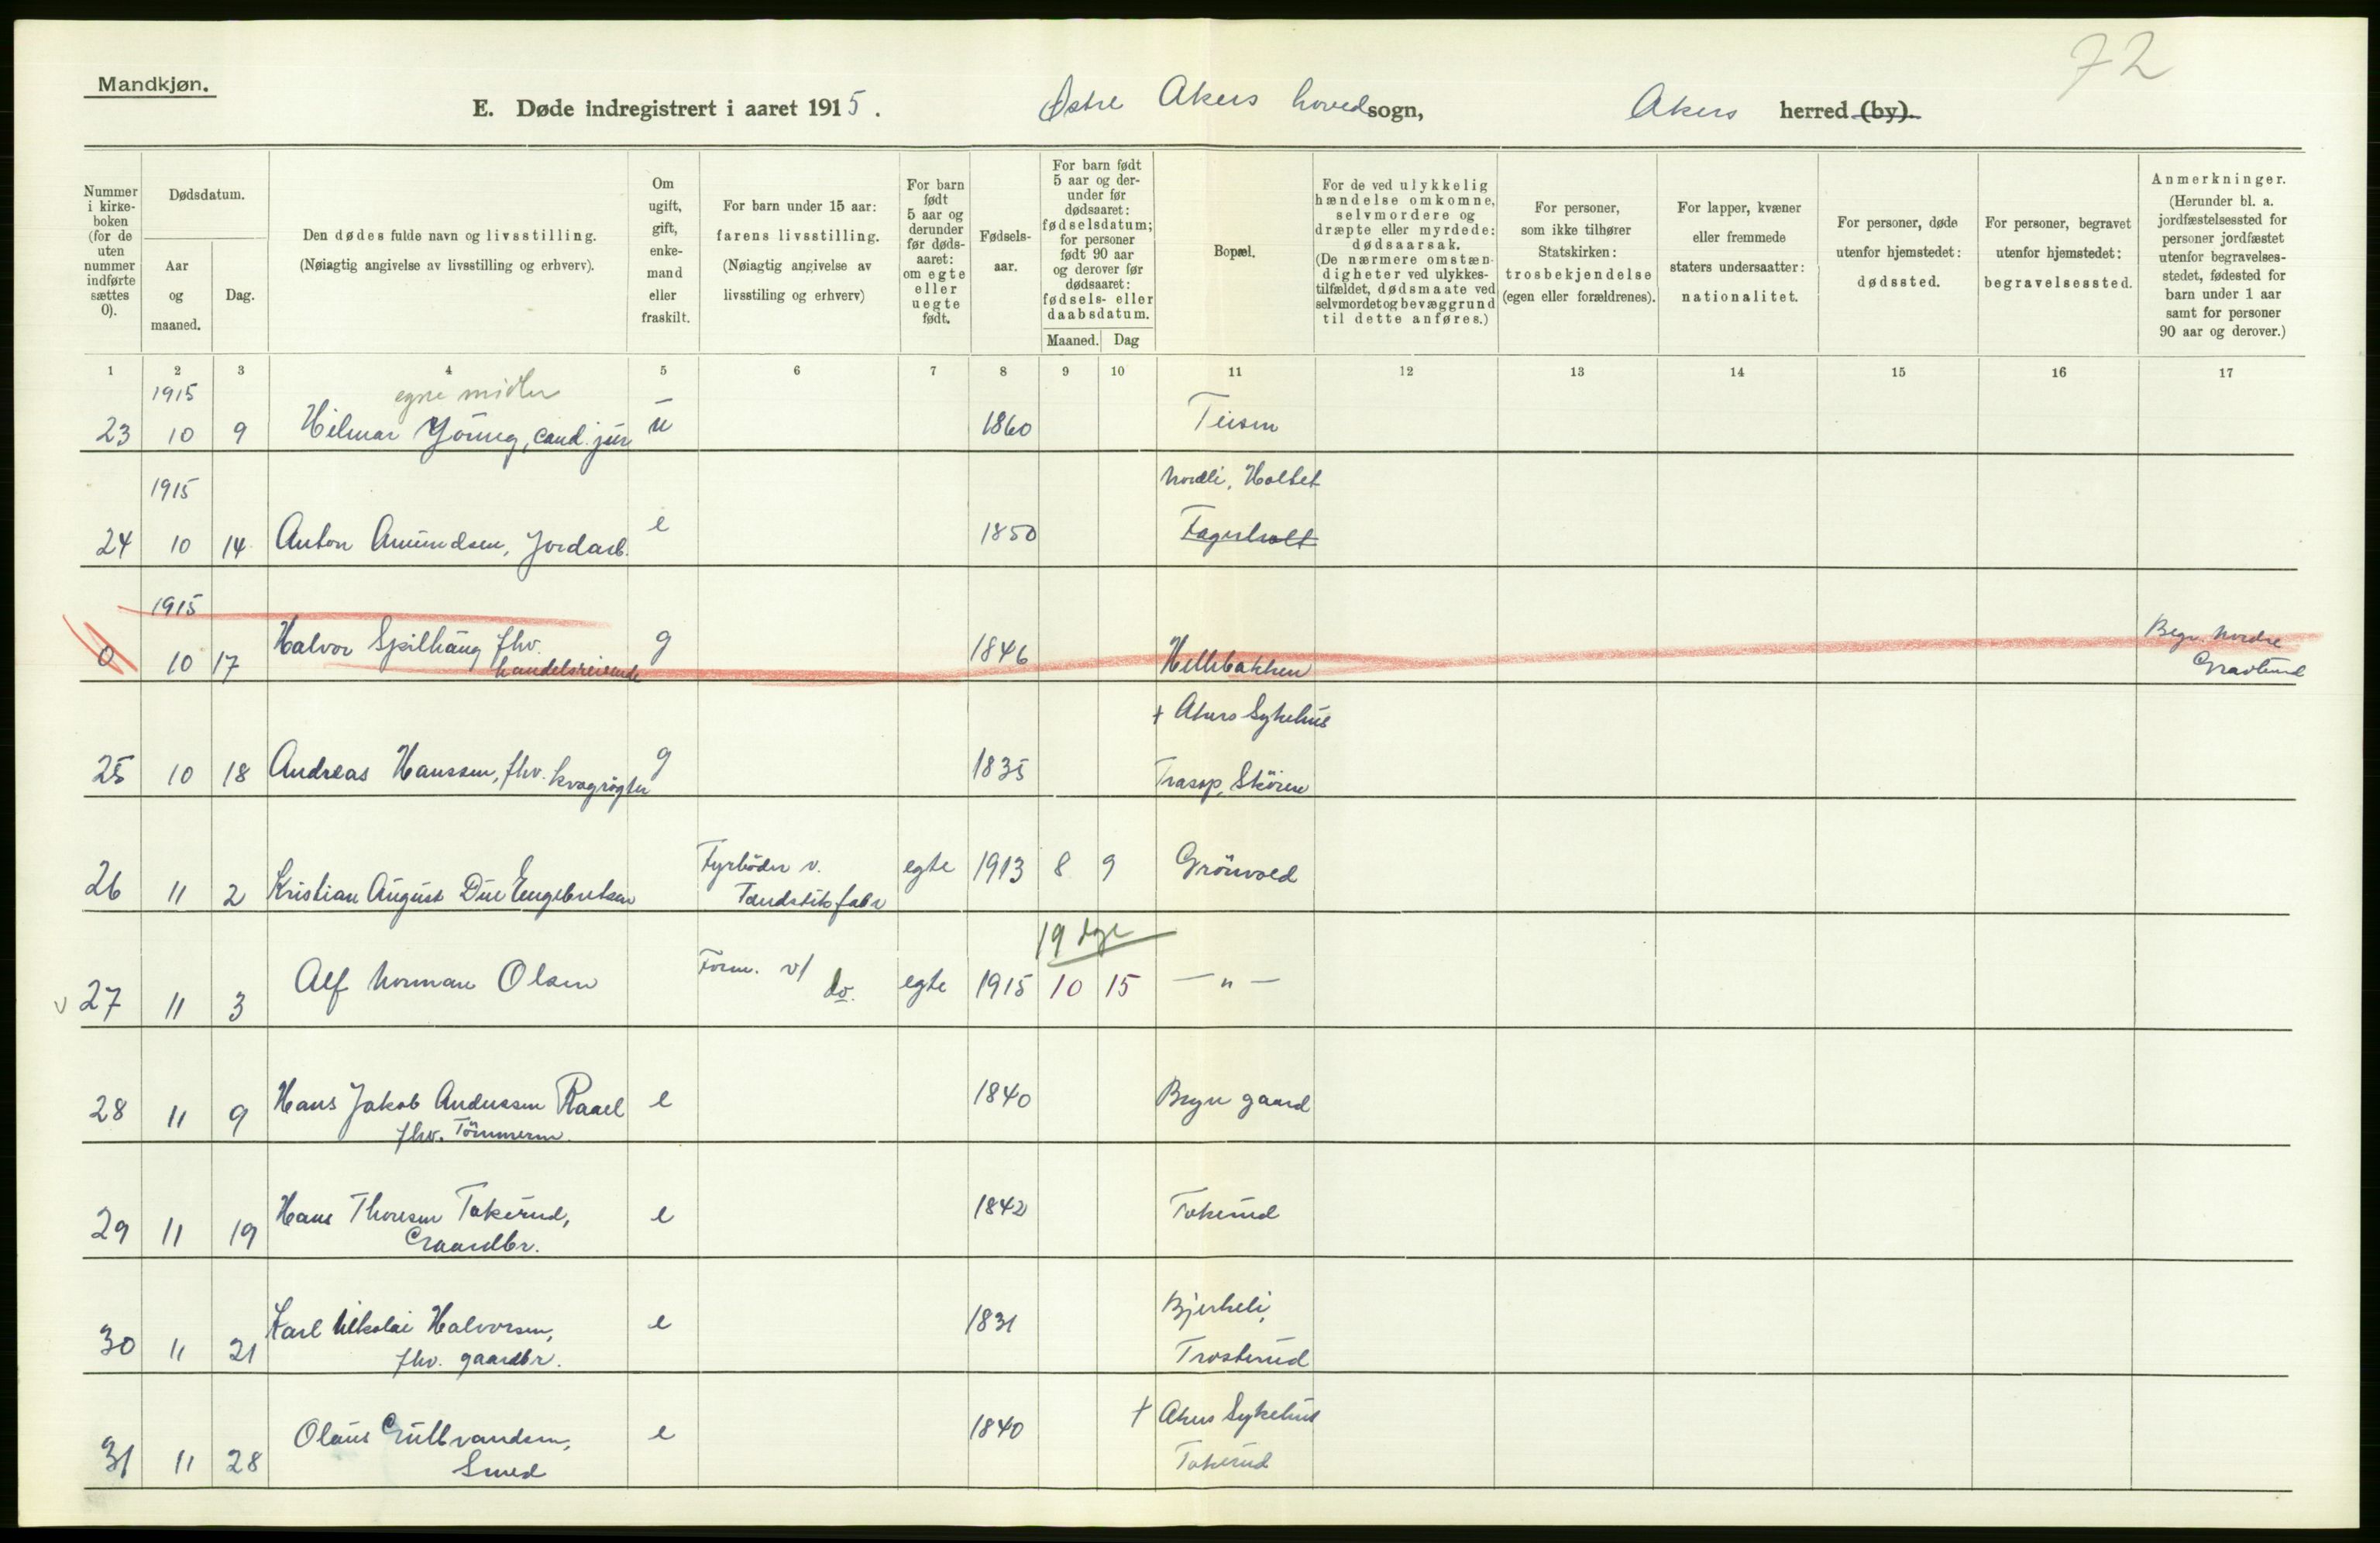 72
Mandkjøn.
E. Døde indregistrert i aaret 1915. Østre Akers hovedsogn, Akers herred (by).
Nummer i kirke- boken (for de uten nummer indførte sættes 0).
Dødsdatum.
Aar og maaned.
Dag.
Den dødes fulde navn og livsstilling.
(Nøiagtig angivelse av livsstilling og erhverv).
Om ugift, gift, enke- mand eller fraskilt.
For barn under 15 aar:
farens livsstilling.
(Nøiagtig angivelse av
livsstiling og erhverv)
For barn født 5 aar og derunder før døds- aaret: om egte eller uegte født.
Fødsels- aar.
For barn født 5 aar og der- under før dødsaaret: fødselsdatum; for personer født 90 aar og derover før dødsaaret: fødsels- eller daabsdatum.
Maaned. Dag
Bopæl.
For de ved ulykkelig hændelse omkomne, selvmordere og dræpte eller myrdede: dødsaarsak. (De nærmere omstæn- digheter ved ulykkes- tilfældet, dødsmaate ved selvmordet og bevæggrund til dette anføres.)
For personer, som ikke tilhører Statskirken: trosbekjendelse (egen eller forældrenes).
For lapper, kvæner eller fremmede staters undersaatter: nationalitet.
For personer, døde utenfor hjemstedet: dødssted.
For personer, begravet utenfor hjemstedet: begravelsessted.
Anmerkninger. (Herunder bl. a. jordfæstelsessted for personer jordfæstet utenfor begravelses- stedet, fødested for barn under 1 aar samt for personer 90 aar og derover.)
1 2 3 4 5 6 7 8 9 10 11 12 13 14 15 16 17
1915 egne midler
23 10 9 Hilmar Young, cand. jur u 1860 Teisen
1915 Nordli, Holtet
24 10 14 Anton Amundsen, Jordarb. e 1850 Fagerholt
1915
0 10 17 Halvor Spilhaug fhv. g 1846 Hellebakken Begr. Nordre
handelsreisende Gravlund
+ Akers Sykehus
25 10 18 Andreas Hanssen, fhv. kvægrögter g 1835 Trasop, Skóien
26 11 2 Kristian August Due Engebretsen Fyrböder v. egte 1913 8 9 Grönvold
Tændstikfabr
19 dge
27 11 3 Alf Norman Olsen Form. v/ do. egte 1915 10 15 — " —
28 11 9 Hans Jakob Anderssen Raael e 1840 Bryn gaard
fhv. Tömmerm.
29 11 19 Hans Thoresen Tokerud, e 1842 Tokerud
Gaardbr.
30 11 21 Karl Nikolai Halvorsen, e 1831 Bjerkeli,
fhv. gaardbr. Trosterud
31 11 28 Olaus Gulbrandsen, e 1840 + Akers Sykehus
Smed Tokerud